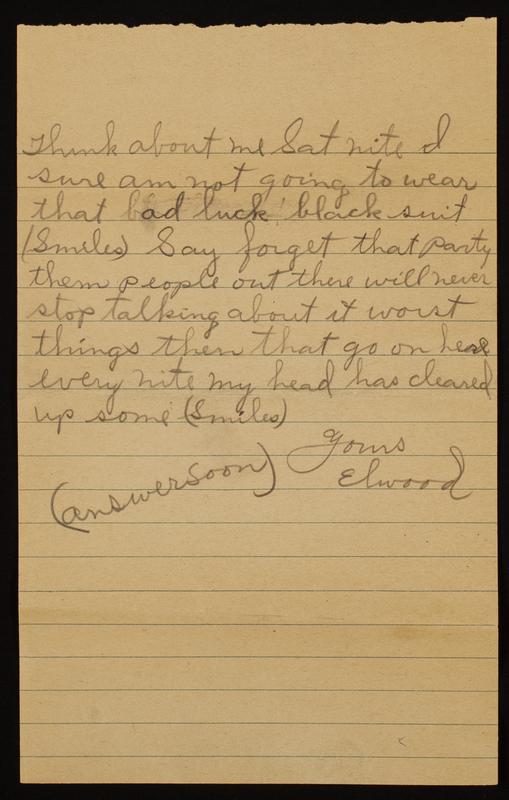 Think about me Sat nite I
sure am not going to wear
that bad luck black suit
(Smiles) Say forget that party
them people out there will never
stop talking about it worst
things then that go on here
every nite my head has cleared
up some (Smiles)
Yours
Elwood
(answer soon)